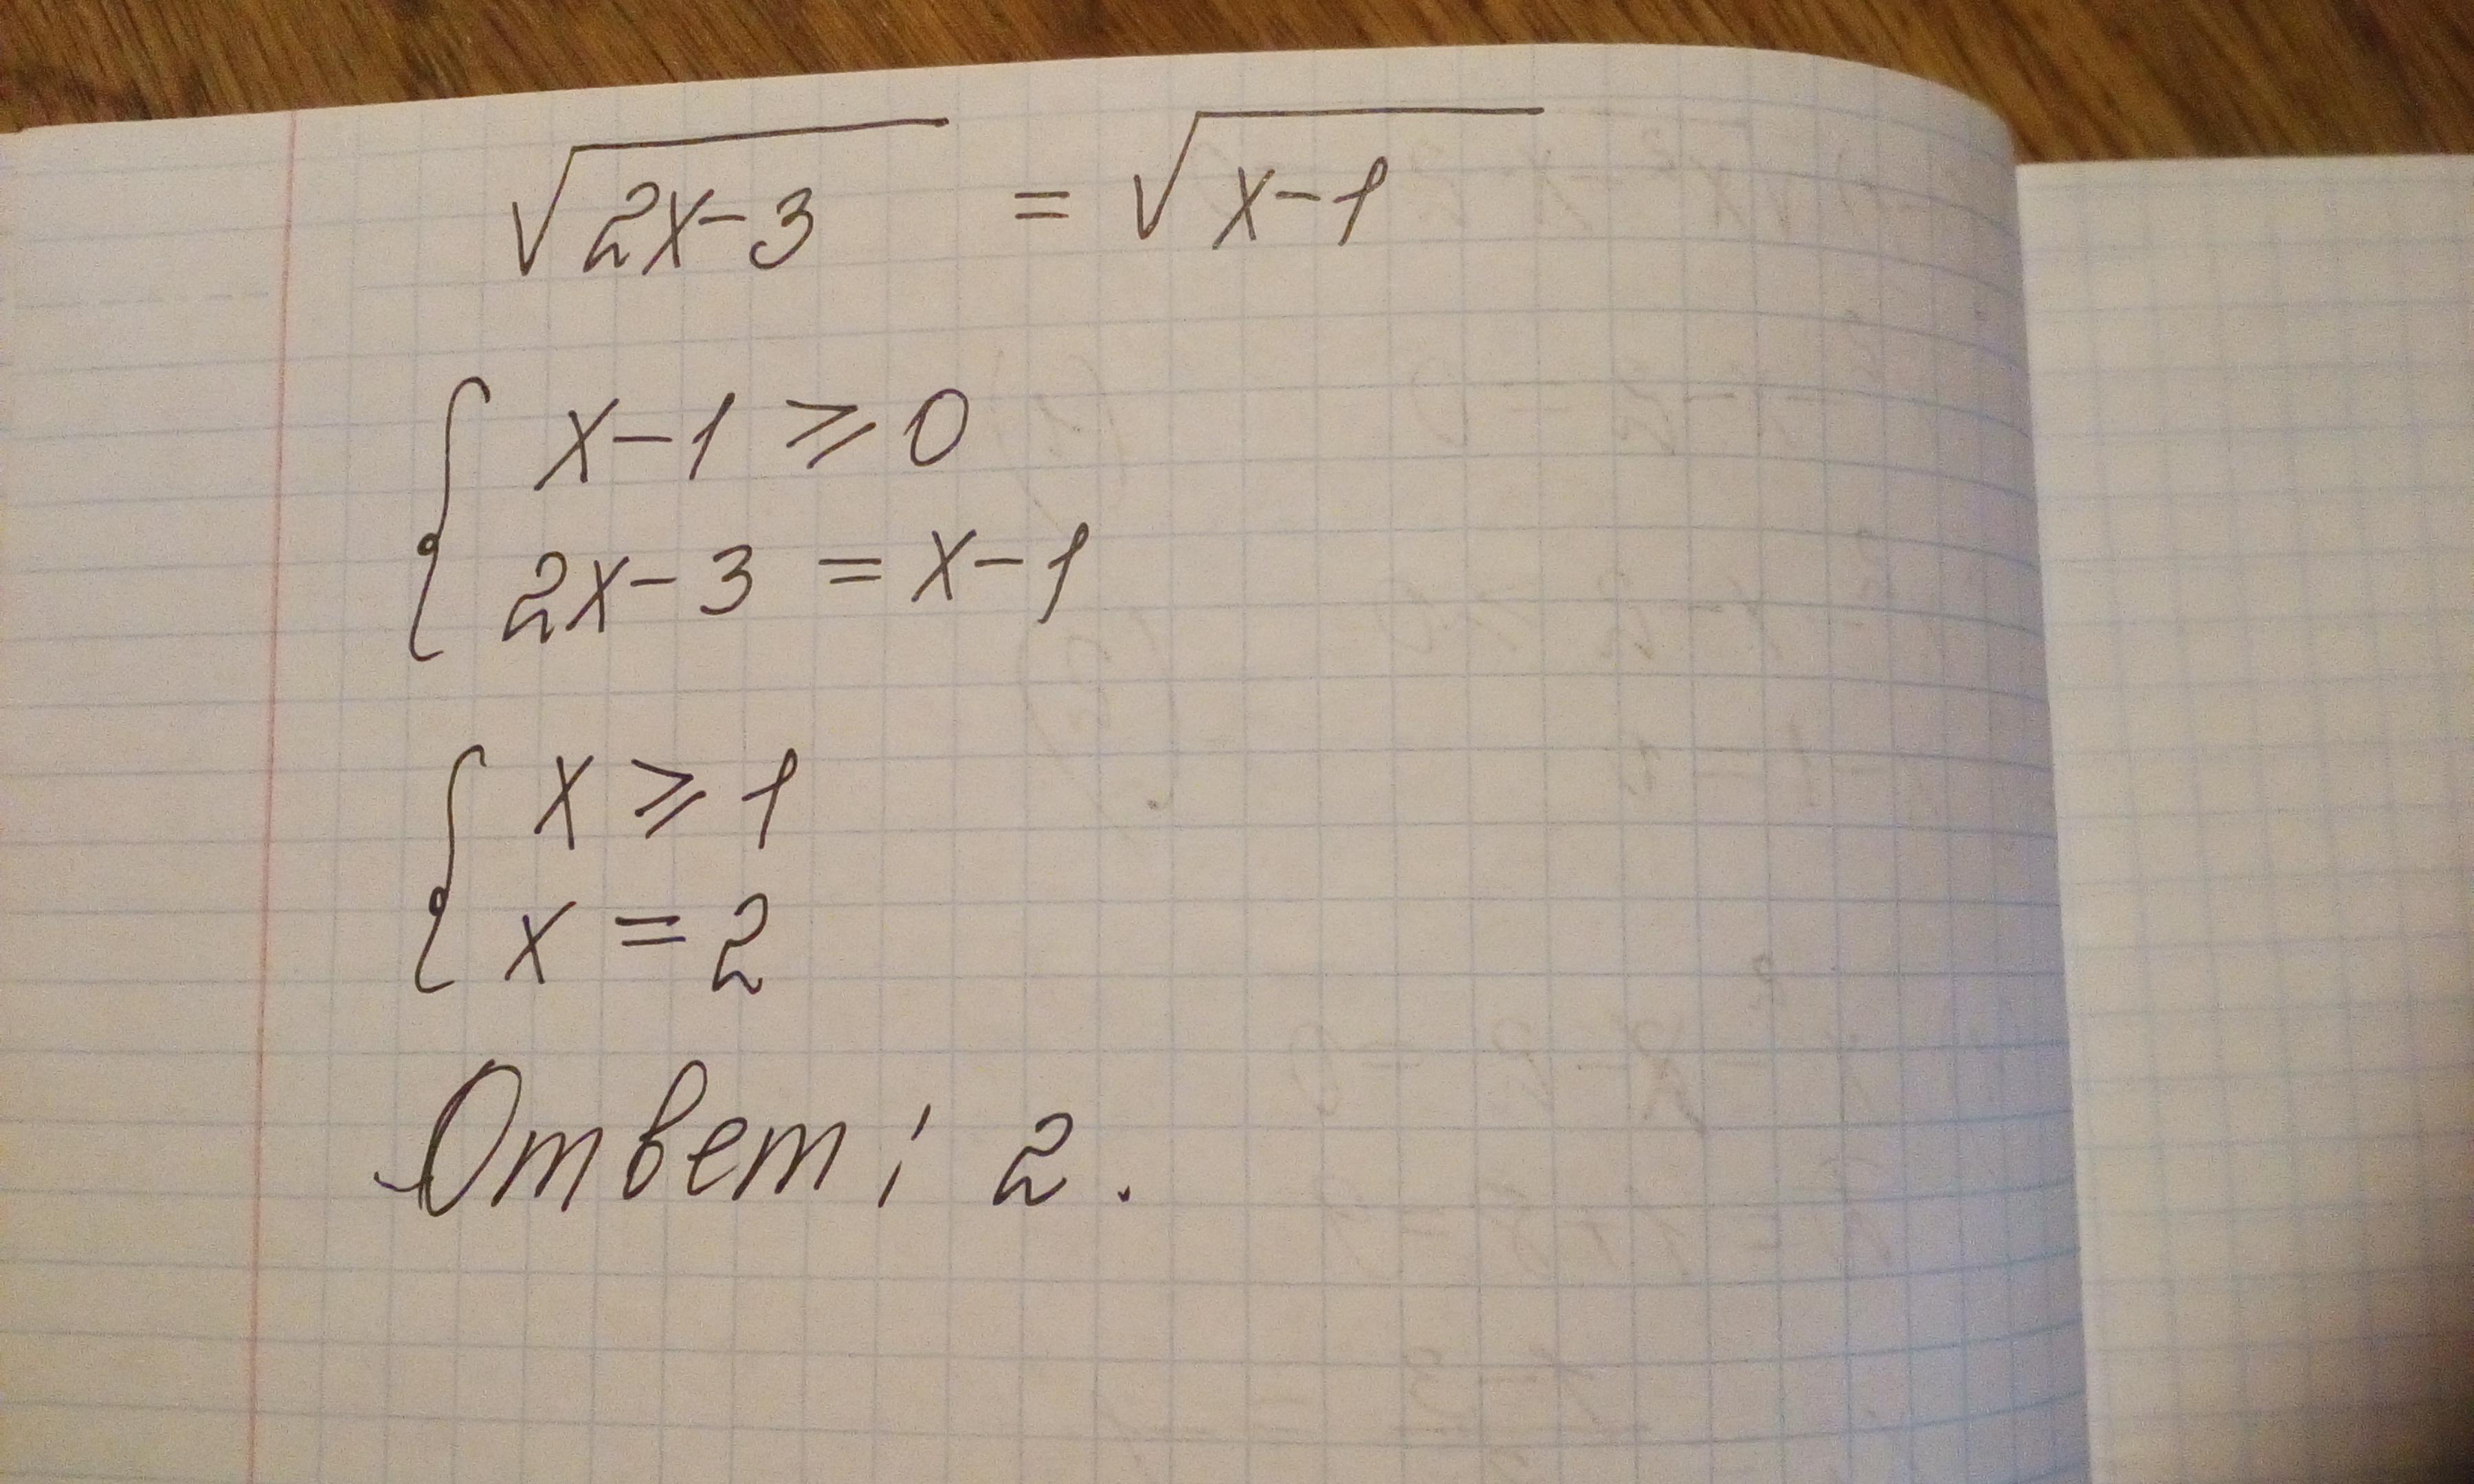 √2x-3 = √x-1
{ x-1 ⩾ 0
2x-3 = x-1
{ x ⩾ 1
x = 2
Ответ: 2.